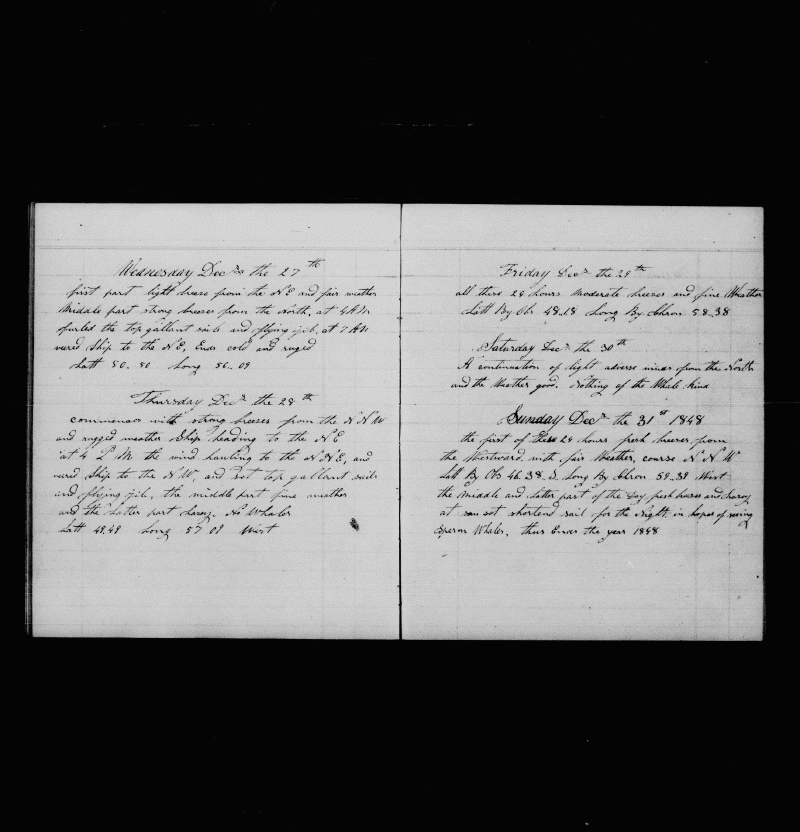 Wednesday Decr the 27th
first part light breese from the N E and fair weather
Middle part strong breeses from the north, at 4 AM
furled the top gallant sails and flying jib, at 7 AM
wered Ship to the N E, Ends cold and ruged
Latt 50.50 Long 56.09
Thursday Decr the 28th
commences with strong breeses from the N N W
and rugged weather Ship heading to the N E
at 4 P M the wind hauling to the N N E, and
wered Ship to the N W, and set top gallant sails
and flying jib, the middle part fine weather
and the Latter part hazey. No Whales
Latt 49.49 Long 57 01 West
Friday Decr the 29th
all these 24 hours moderate breezes and fine Weather
Latt By Ob 48.18 Long By Chron 58.38
Saturday Decr the 30th
A continuation of light adverse winds from the North
and the Weather good. Nothing of the Whale kind
Sunday Decr the 31st 1848
the first of these 24 hours fresh breezes from
the Westward, with fair Weather, course N N W
Latt By Obs 46.38. S. Long By Chron 59.39 West
the Middle and Latter part of the day fresh breeses and hazey
at sun set shortend sail for the Night, in hopes of seeing
Sperm Whales, thus Ends the year 1848